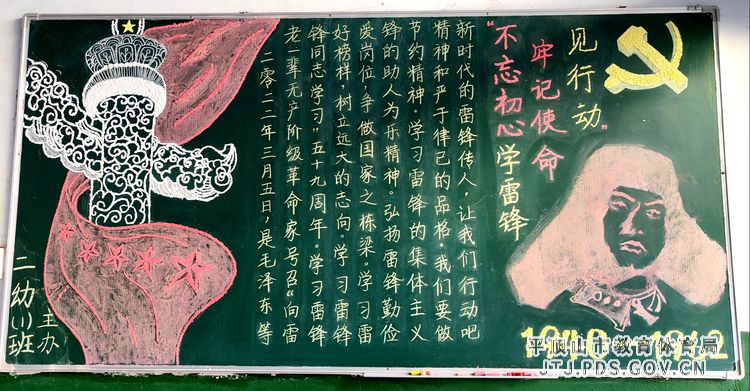 “不忘初心学雷锋
牢记使命
见行动”
二零二二年三月五日，是毛泽东等
老一辈无产阶级革命家号召“向雷
锋同志学习”五十九周年。学习雷锋
好榜样，树立远大的志向，学习雷锋
爱岗位，争做国家之栋梁。学习雷
锋的助人为乐精神。弘扬雷锋勤俭
节约精神，学习雷锋的集体主义
精神和严于律己的品格。我们要做
新时代的雷锋传人，让我们行动吧
二幼(1)班
主办
平顶山市教育体育局
JTJ.PDS.GOV.CN